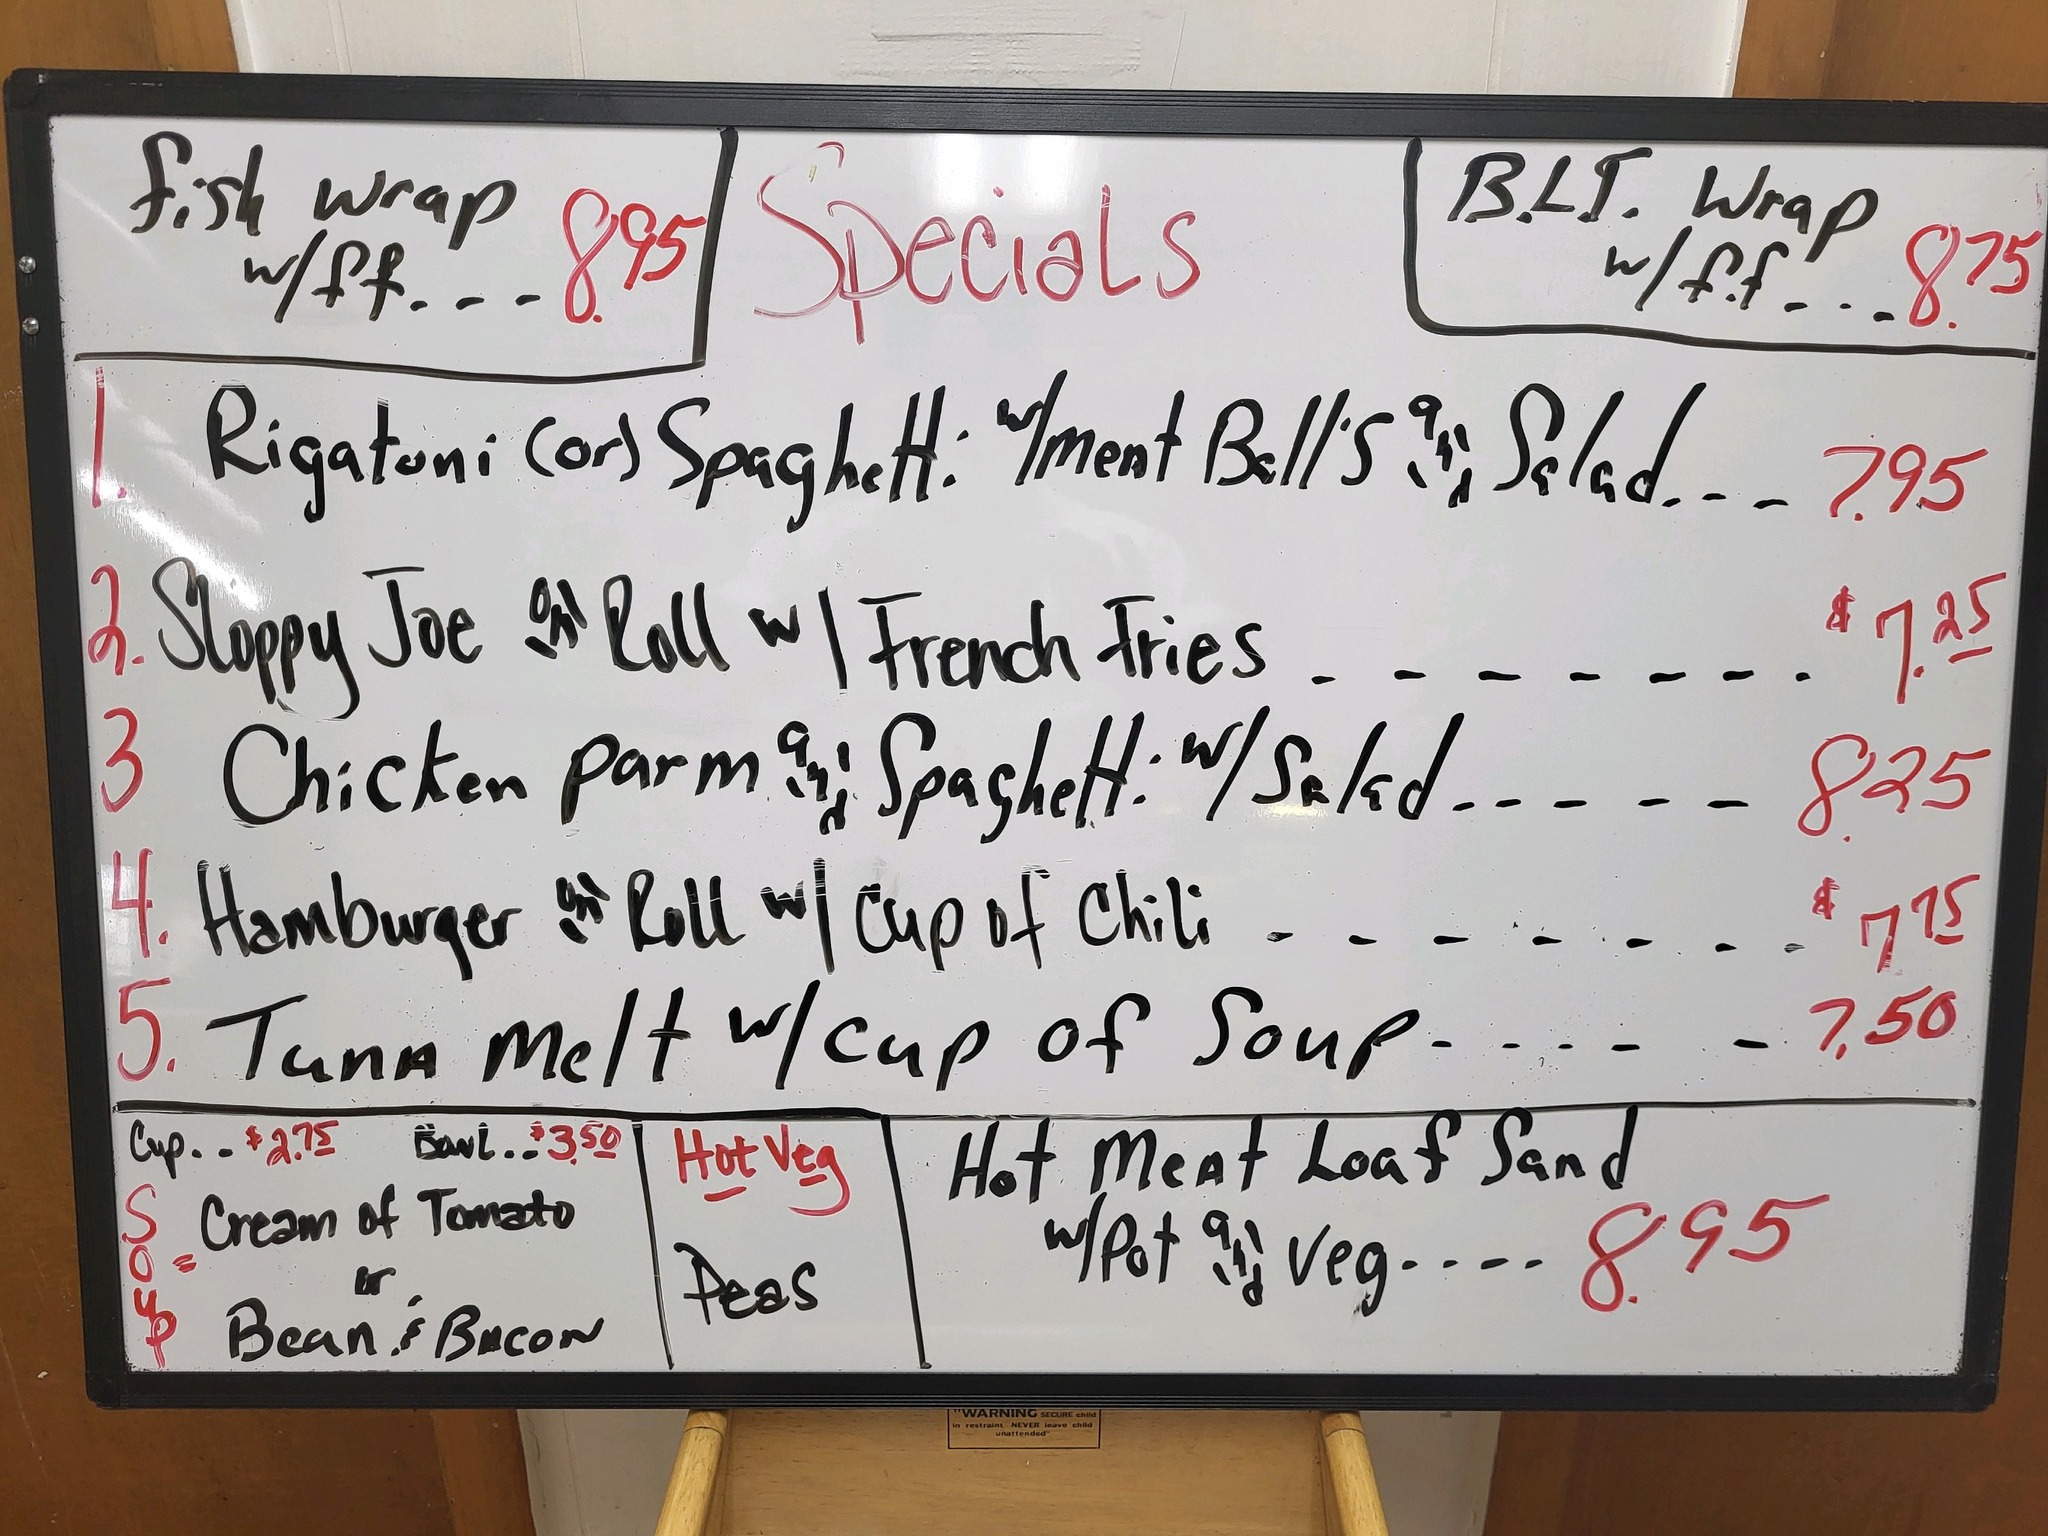 fish wrap
w/ff. - - - 8.95
Specials
B.L.T. Wrap
w/f.f - - . - 8.75
1. Rigatoni (or) Spaghetti w/meat Ball's and Salad. - - - 7.95
2. Sloppy Joe on Roll w/ French Fries - - - - - - - . $7.25
3 Chicken parm and Spaghetti w/Salad - - - - - 8.25
4. Hamburger on Roll w/ Cup of Chili - - - - - - - $7.75
5. Tuna melt w/cup of Soup - - - - - - 7.50
Cup. . - $2.75 Bowl. . - $3.50
Soup = Cream of Tomato
or
Bean & Bacon
Hot Veg
Peas
Hot Meat Loaf Sand
w/Pot and Veg. - - - - 8.95
"WARNING SECURE child
in restraint NEVER leave child
unattended"